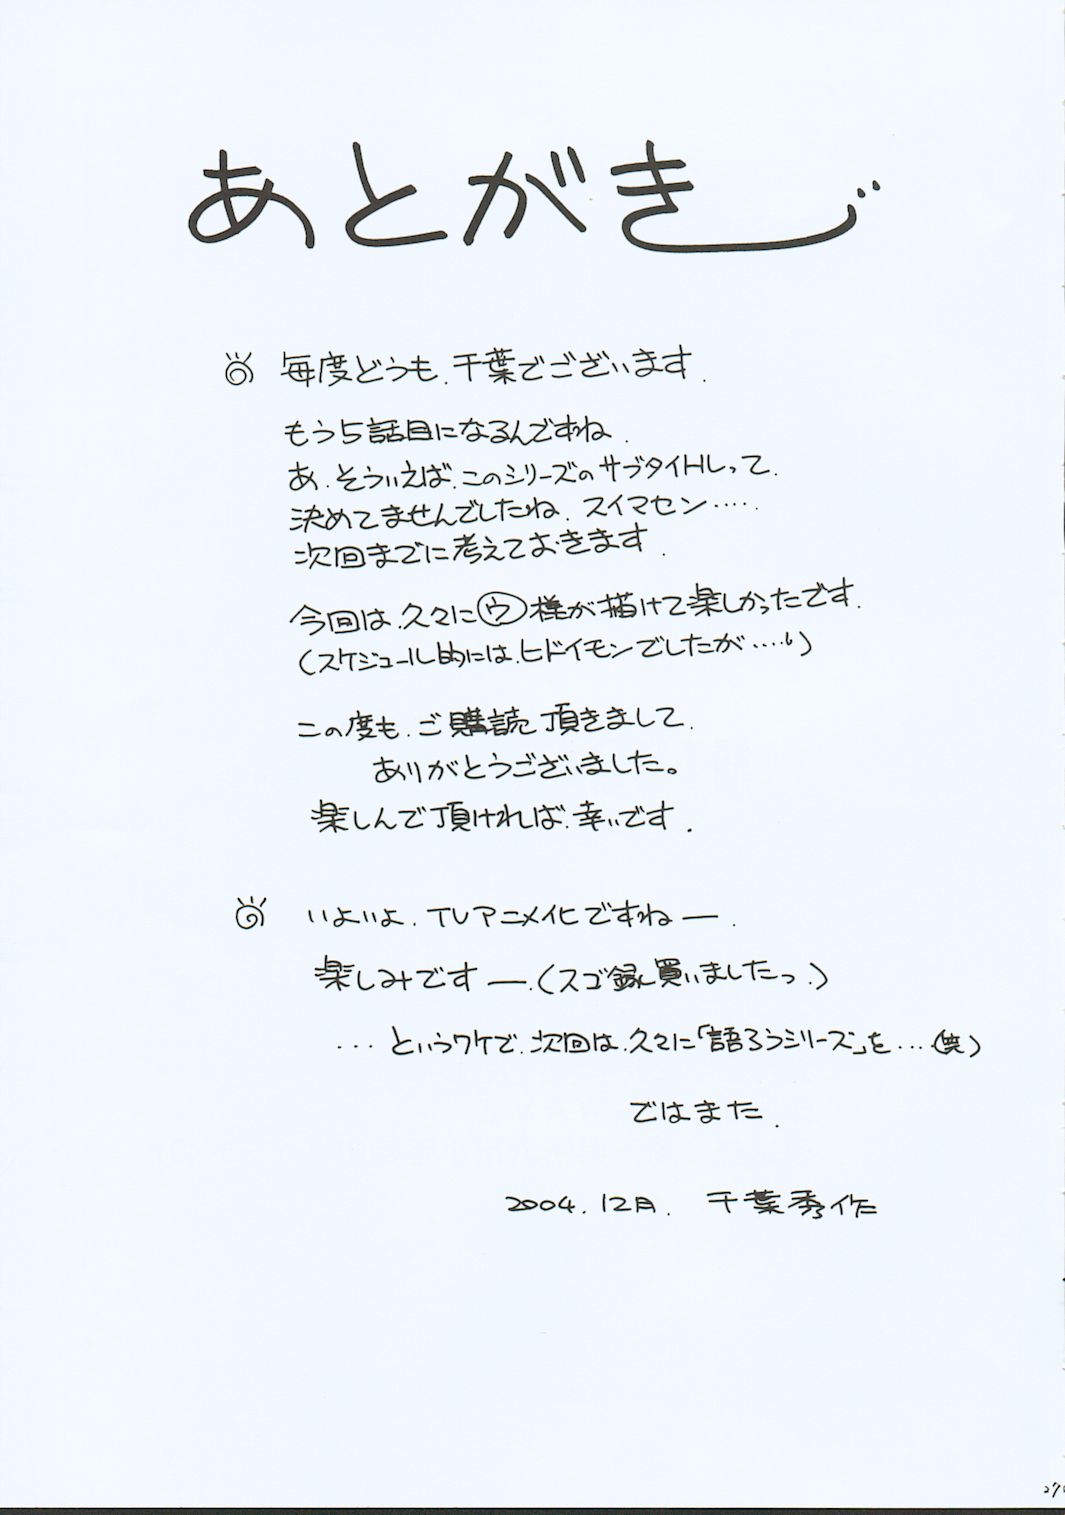 あとがき
毎度どうも、千葉でございます。
もう5話目になるんですね。
あ、そういえば、このシリーズのサブタイトルって、
決めてませんでしたね、スイマセン・・・・・
次回までに考えておきます。
今回は、久々にウ様が描けて楽しかったです。
(スケジュール的には、ヒドイモンでしたが・・・・)
この度も、ご購読頂きまして、
ありがとうございました。
楽しんで頂ければ、幸いです。
いよいよ、TVアニメ化ですねー、
楽しみですー、(スゴ録買いましたっ、)
・・・というワケで、次回は、久々に「語ろうシリーズ」を・・・(笑)
ではまた、
2004.12月、千葉秀作